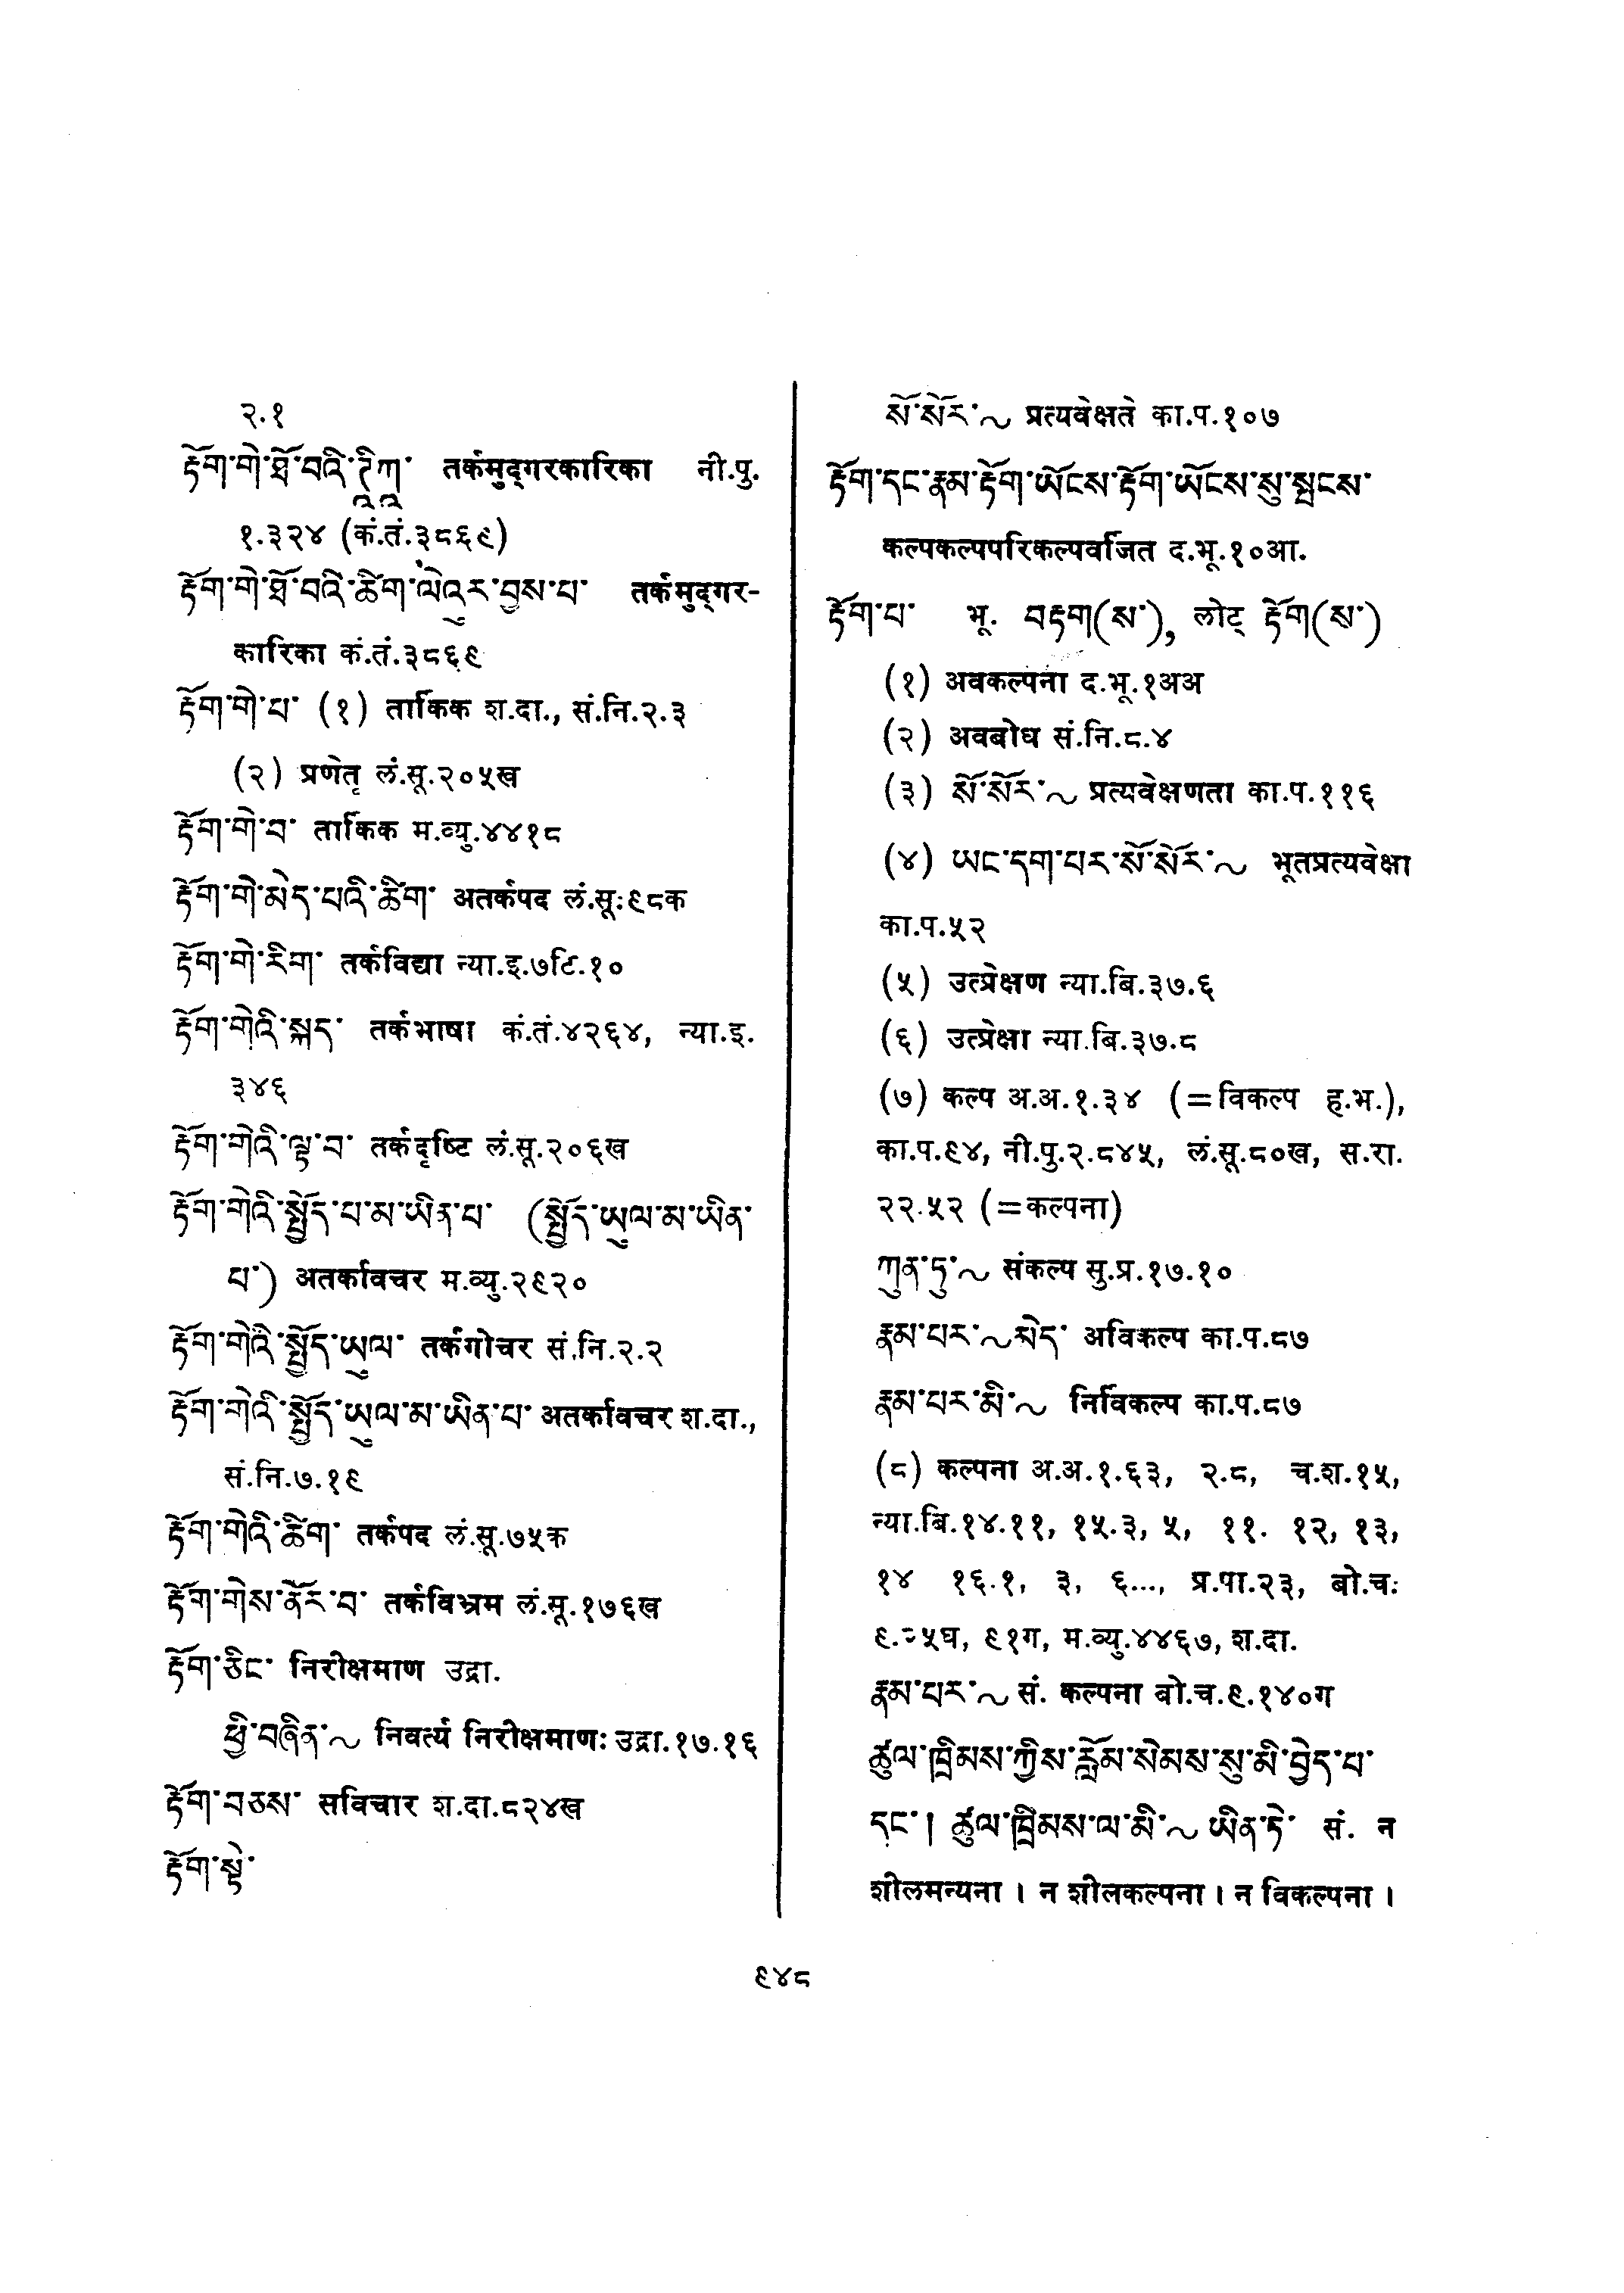 २.१
རྟོག་གེ་ཐོ་བའི་ཊཱིཀཱ་ तर्कमुद्गरकारिका नी.पु.
१.३२४ (कं.तं.३८६९)
རྟོག་གེ་ཐོ་བའི་ཚིག་ལེའུར་བྱས་པ་ तर्कमुद्गर-
कारिका कं.तं.३८६९
རྟོག་གེ་པ་ (१) तार्किक श.दा., सं.नि.२.३
(२) प्रणेतृ लं.सू.२०५ख
རྟོག་གེ་བ་ तार्किक म.व्यु.४४१८
རྟོག་གེ་མེད་པའི་ཚིག་ अतर्कपद लं.सू.९८क
རྟོག་གེ་རིག་ तर्कविद्या न्या.इ.७टि.१०
རྟོག་གེའི་སྐད་ तर्कभाषा कं.तं.४२६४, न्या.इ.
३४६
རྟོག་གེའི་ལྟ་བ་ तर्कदृष्टि लं.सू.२०६ख
རྟོག་གེའི་སྤྱོད་པ་མ་ཡིན་པ་ (སྤྱོད་ཡུལ་མ་ཡིན་
པ་) अतर्कावचर म.व्यु.२९२०
རྟོག་གེའི་སྤྱོད་ཡུལ་ तर्कगोचर सं.नि.२.२
རྟོག་གེའི་སྤྱོད་ཡུལ་མ་ཡིན་པ་ अतर्कावचर श.दा.,
सं.नि.७.१९
རྟོག་གེའི་ཚིག་ तर्कपद लं.सू.७५क
རྟོག་གེས་ནོར་བ་ तर्कविभ्रम लं.सू.१७६ख
རྟོག་ཅིང་ निरीक्षमाण उद्रा.
ཕྱི་བཞིན་~ निवर्त्य निरीक्षमाणः उद्रा.१७.१६
རྟོག་བཅས་ सविचार श.दा.८२४ख
རྟོག་སྟེ་
སོ་སོར་~ प्रत्यवेक्षते का.प.१०७
རྟོག་དང་རྣམ་རྟོག་ཡོངས་རྟོག་ཡོངས་སུ་སྤངས་
कल्पकल्पपरिकल्पवर्जित द.भू.१०आ.
རྟོག་པ་ भू. བརྟག(ས་), लोट् རྟོག(ས་)
(१) अवकल्पना द.भू.१अअ
(२) अवबोध सं.नि.८.४
(३) སོ་སོར་~ प्रत्यवेक्षणता का.प.११६
(४) ཡང་དག་པར་སོ་སོར་~ भूतप्रत्यवेक्षा
का.प.५२
(५) उत्प्रेक्षण न्या.बि.३७.६
(६) उत्प्रेक्षा न्या.बि.३७.८
(७) कल्प अ.अ.१.३४ (=विकल्प ह.भ.),
का.प.९४, नी.पु.२.८४५, लं.सू.८०ख, स.रा.
२२.५२ (=कल्पना)
ཀུན་ཏུ་~ संकल्प सु.प्र.१७.१०
རྣམ་པར་~མེད་ अविकल्प का.प.८७
རྣམ་པར་མི་~ निर्विकल्प का.प.८७
(८) कल्पना अ.अ.१.६३, २.८, च.श.१५,
न्या.बि.१४.११, १५.३, ५, ११. १२, १३,
१४ १६.१, ३, ६..., प्र.पा.२३, बो.च.
९१ग, म.व्यु.४४६७, श.दा.
རྣམ་པར་~ सं. कल्पना बो.च.९.१४०ग
ཚུལ་ཁྲིམས་ཀྱིས་རློམ་སེམས་སུ་མི་བྱེད་པ་
དང་། ཚུལ་ཁྲིམས་ལ་མི་~ ཡིན་ཏེ་ सं. न
शीलमन्यना । न शीलकल्पना । न विकल्पना ।
९४८